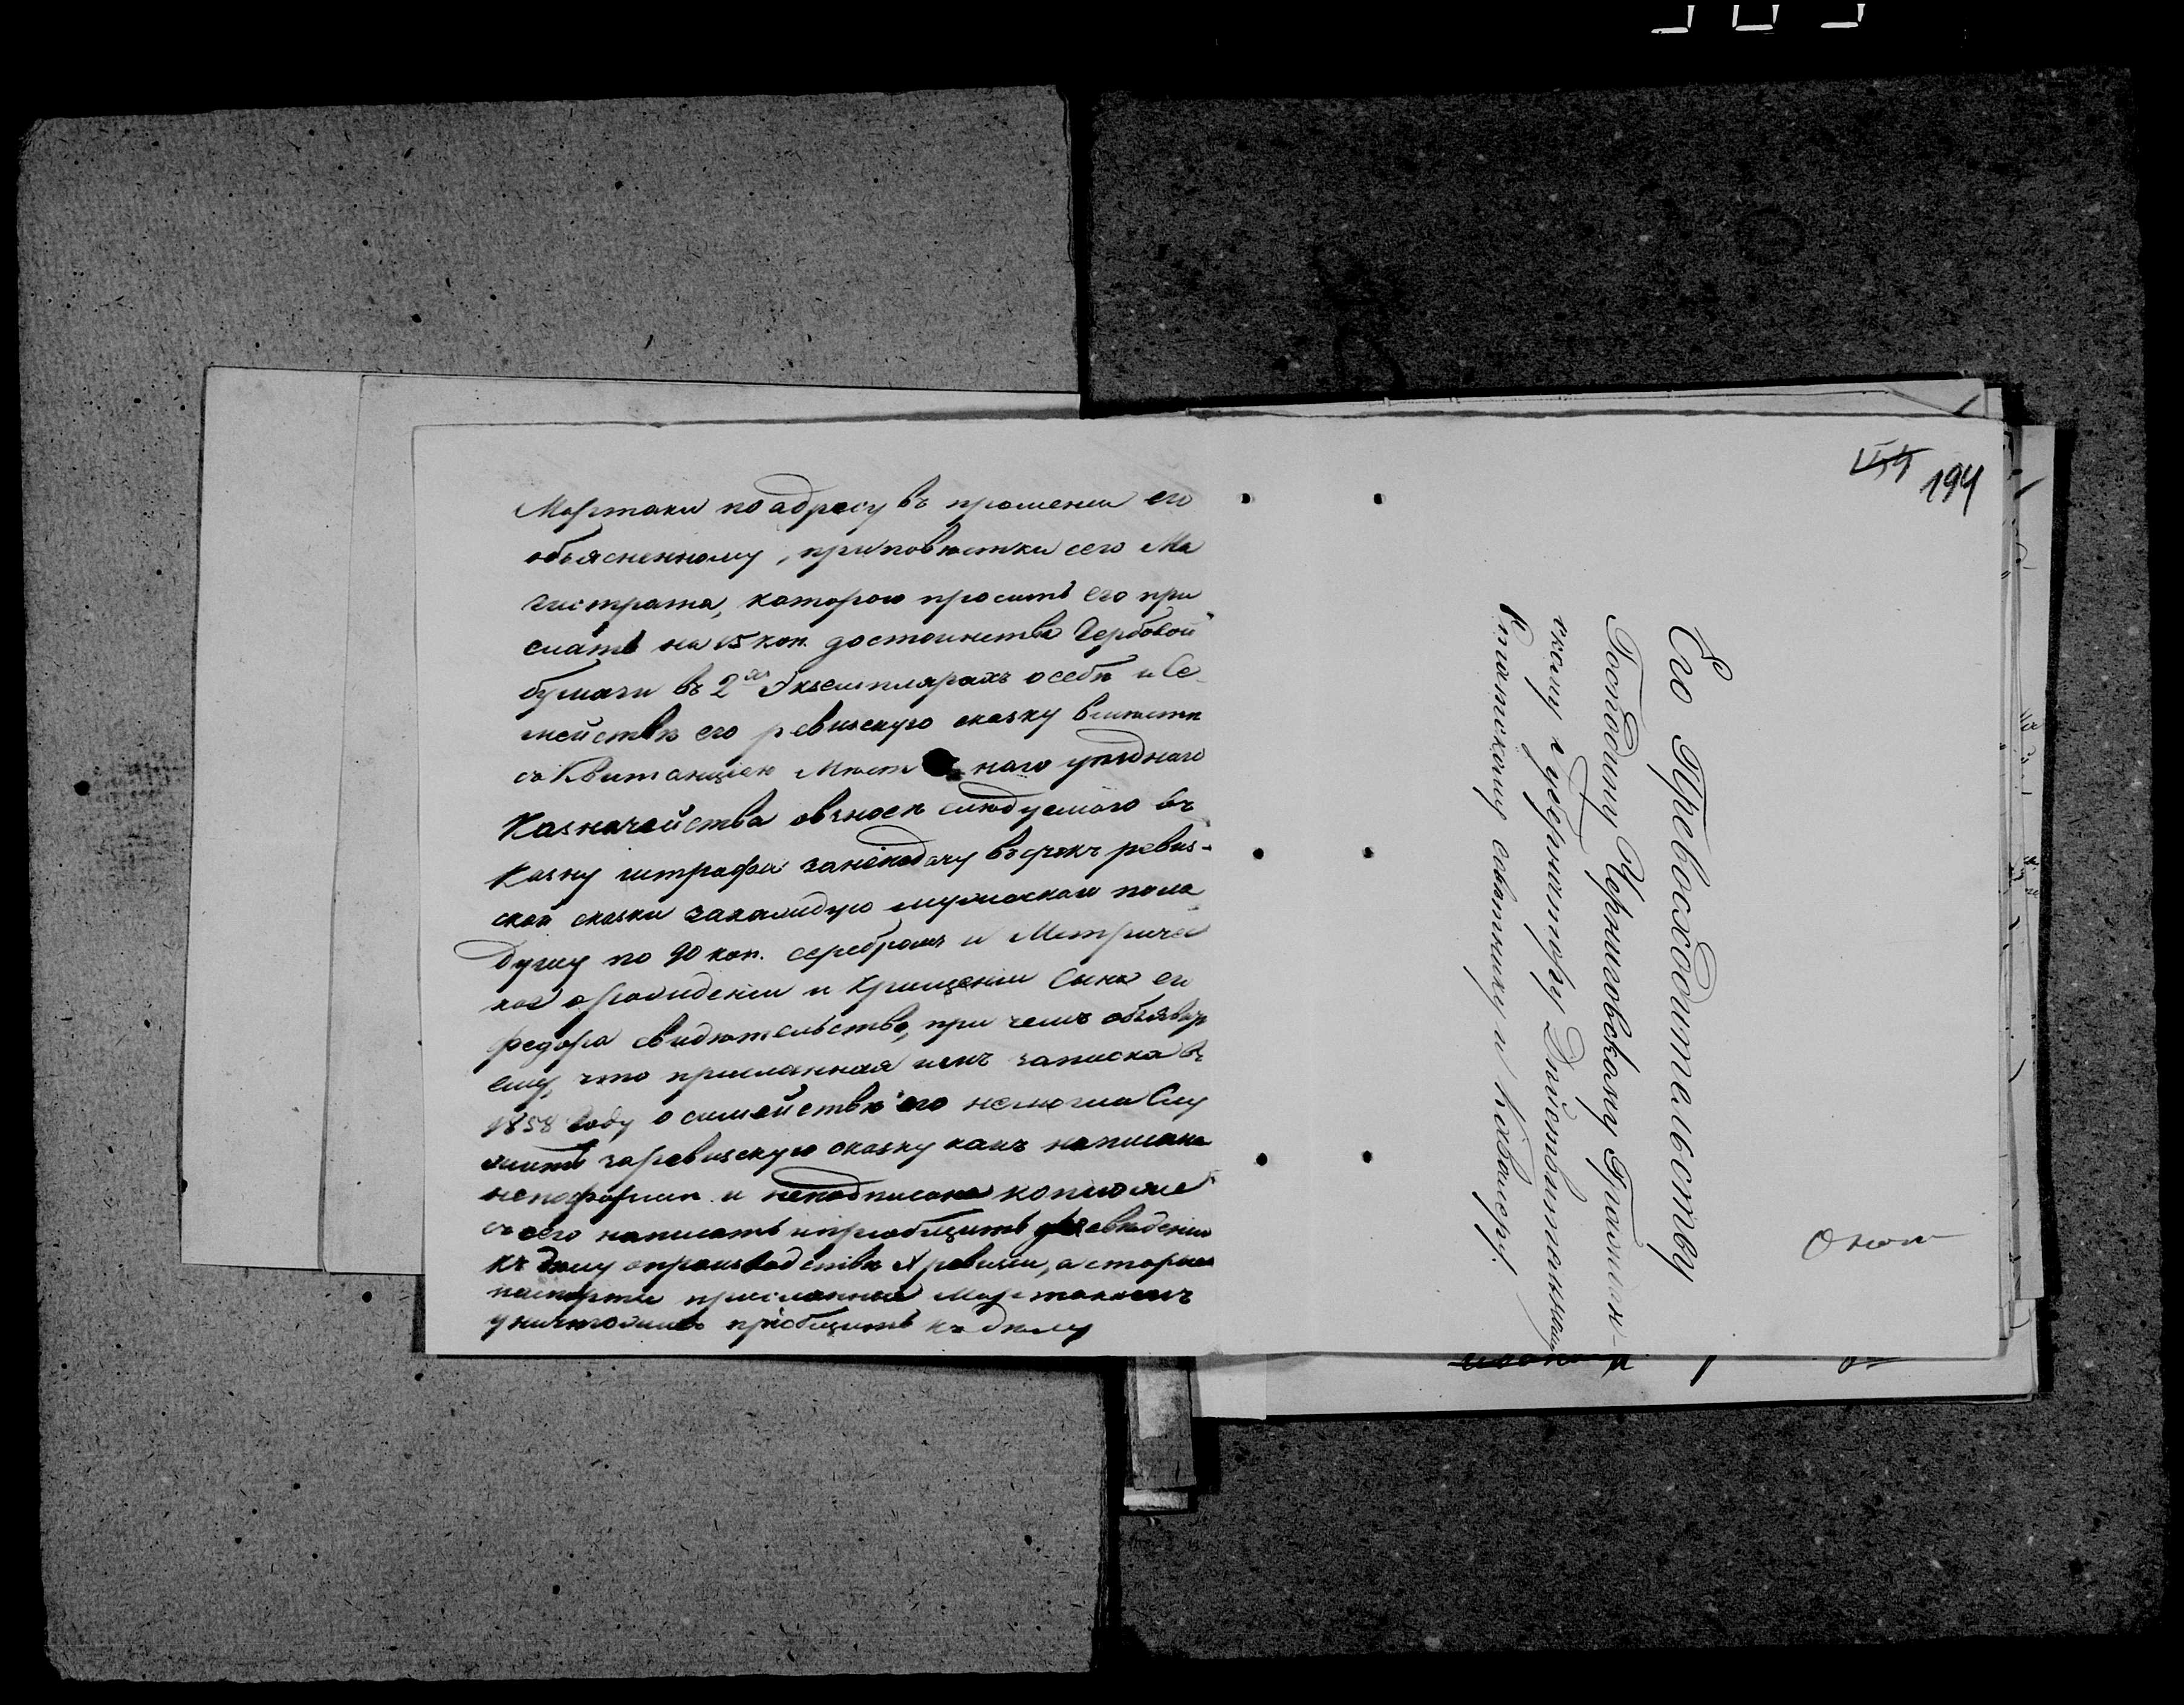 Мартоки по адресу въ прошении его
объясненному, приповѣстки сего Ма
гистрата, которою просить его при
слать на 15 коп. достоинства Гербовой
бумаги въ 2хъ Экземплярахъ о себѣ и Се-
мействѣ его ревизскую сказку вмѣстѣ
съ Квитанціею Мѣст наго уѣзднаго
Казначейства овзносѣ слѣдуемаго въ
Казну штрафа занеподачу въсрокъ ревиз-
ской сказки закаждую мужескаго пола
душу по 90 коп. серебромъ и Метриче
кое орождении и Крещении Сына его
Федора свидѣтельство, при чемъ объявить
ему, что присланная имъ записка въ
1858 году о семействѣ его немогла Слу
жить заревизскую сказку какъ написана
непоформѣ и неподписана копію же
съ сего написать иприобщить свѣденію
къ дѣлу опроизводствѣ Х ревизии, а старые
паспорты присланные Мартокою
уничтоживъ приобщить къ дѣлу
194
Его Превосходительству
Господину Черниговскому Граждан-
скому Губернатору Дѣйствительному
Статскому совѣтнику и Кавалеру.